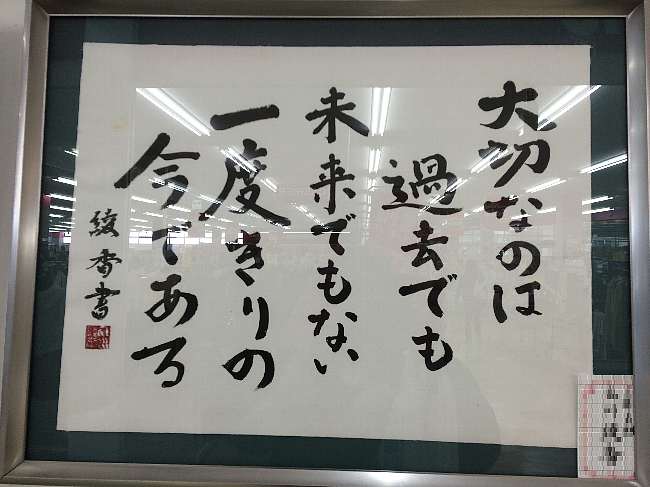 大切なのは
過去でも
未来でもない
一度きりの
今である
綾香書